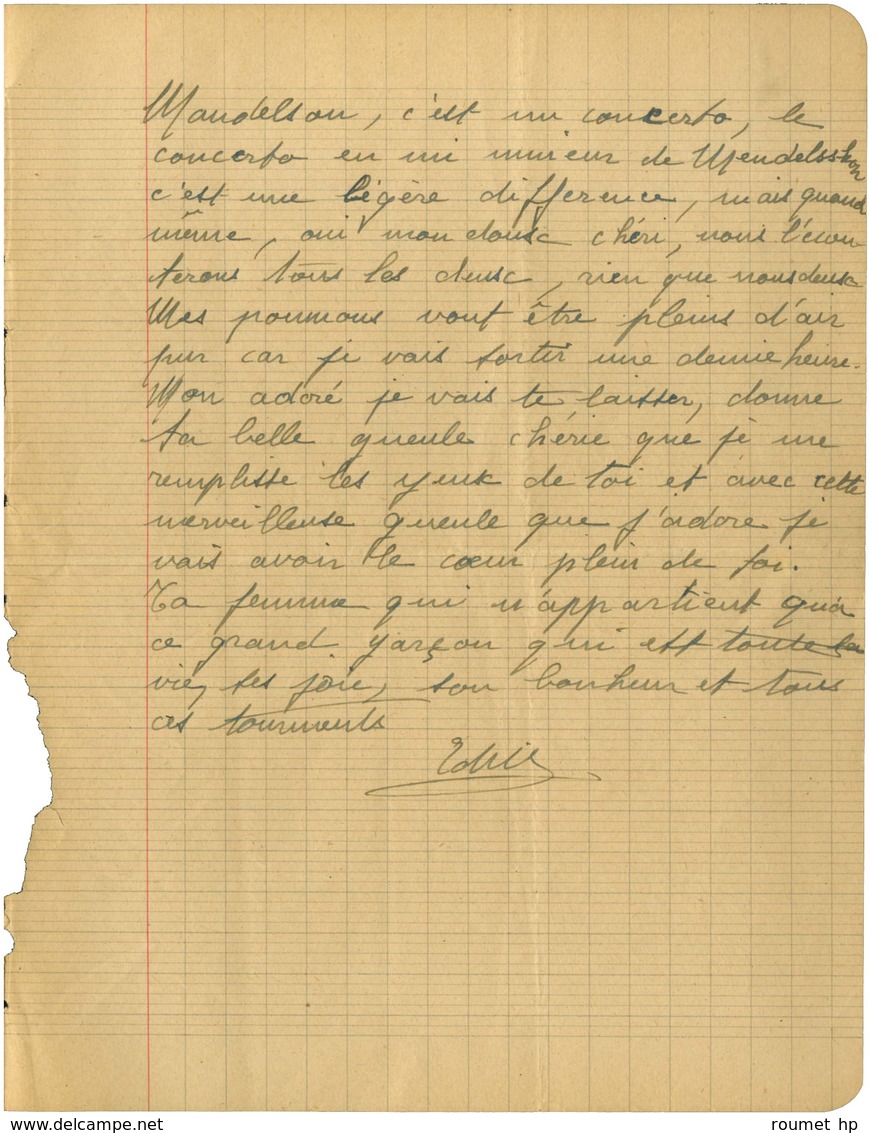 Mandelson, c'est un concerto, le
concerto en mi mineur de Mendelsshon
c'est une légère difference, mais quand
même, oui mon doux chéri, nous l'écou
terons tous les deux, rien que nous deux
Mes poumons vont être pleins d'air
pur car je vais sortir une demie heure.
Mon adoré je vais te laisser, donne
ta belle gueule chérie que je me
remplisse les yeux de toi et avec cette
merveilleuse gueule que j'adore je
vais avoir le cœur plein de toi.
Ta femme qui n'appartient qu'a
ce grand garçon qui est toute sa
vie, ses joie, son bonheur et tous
ces tourments
Edith
roumet hp